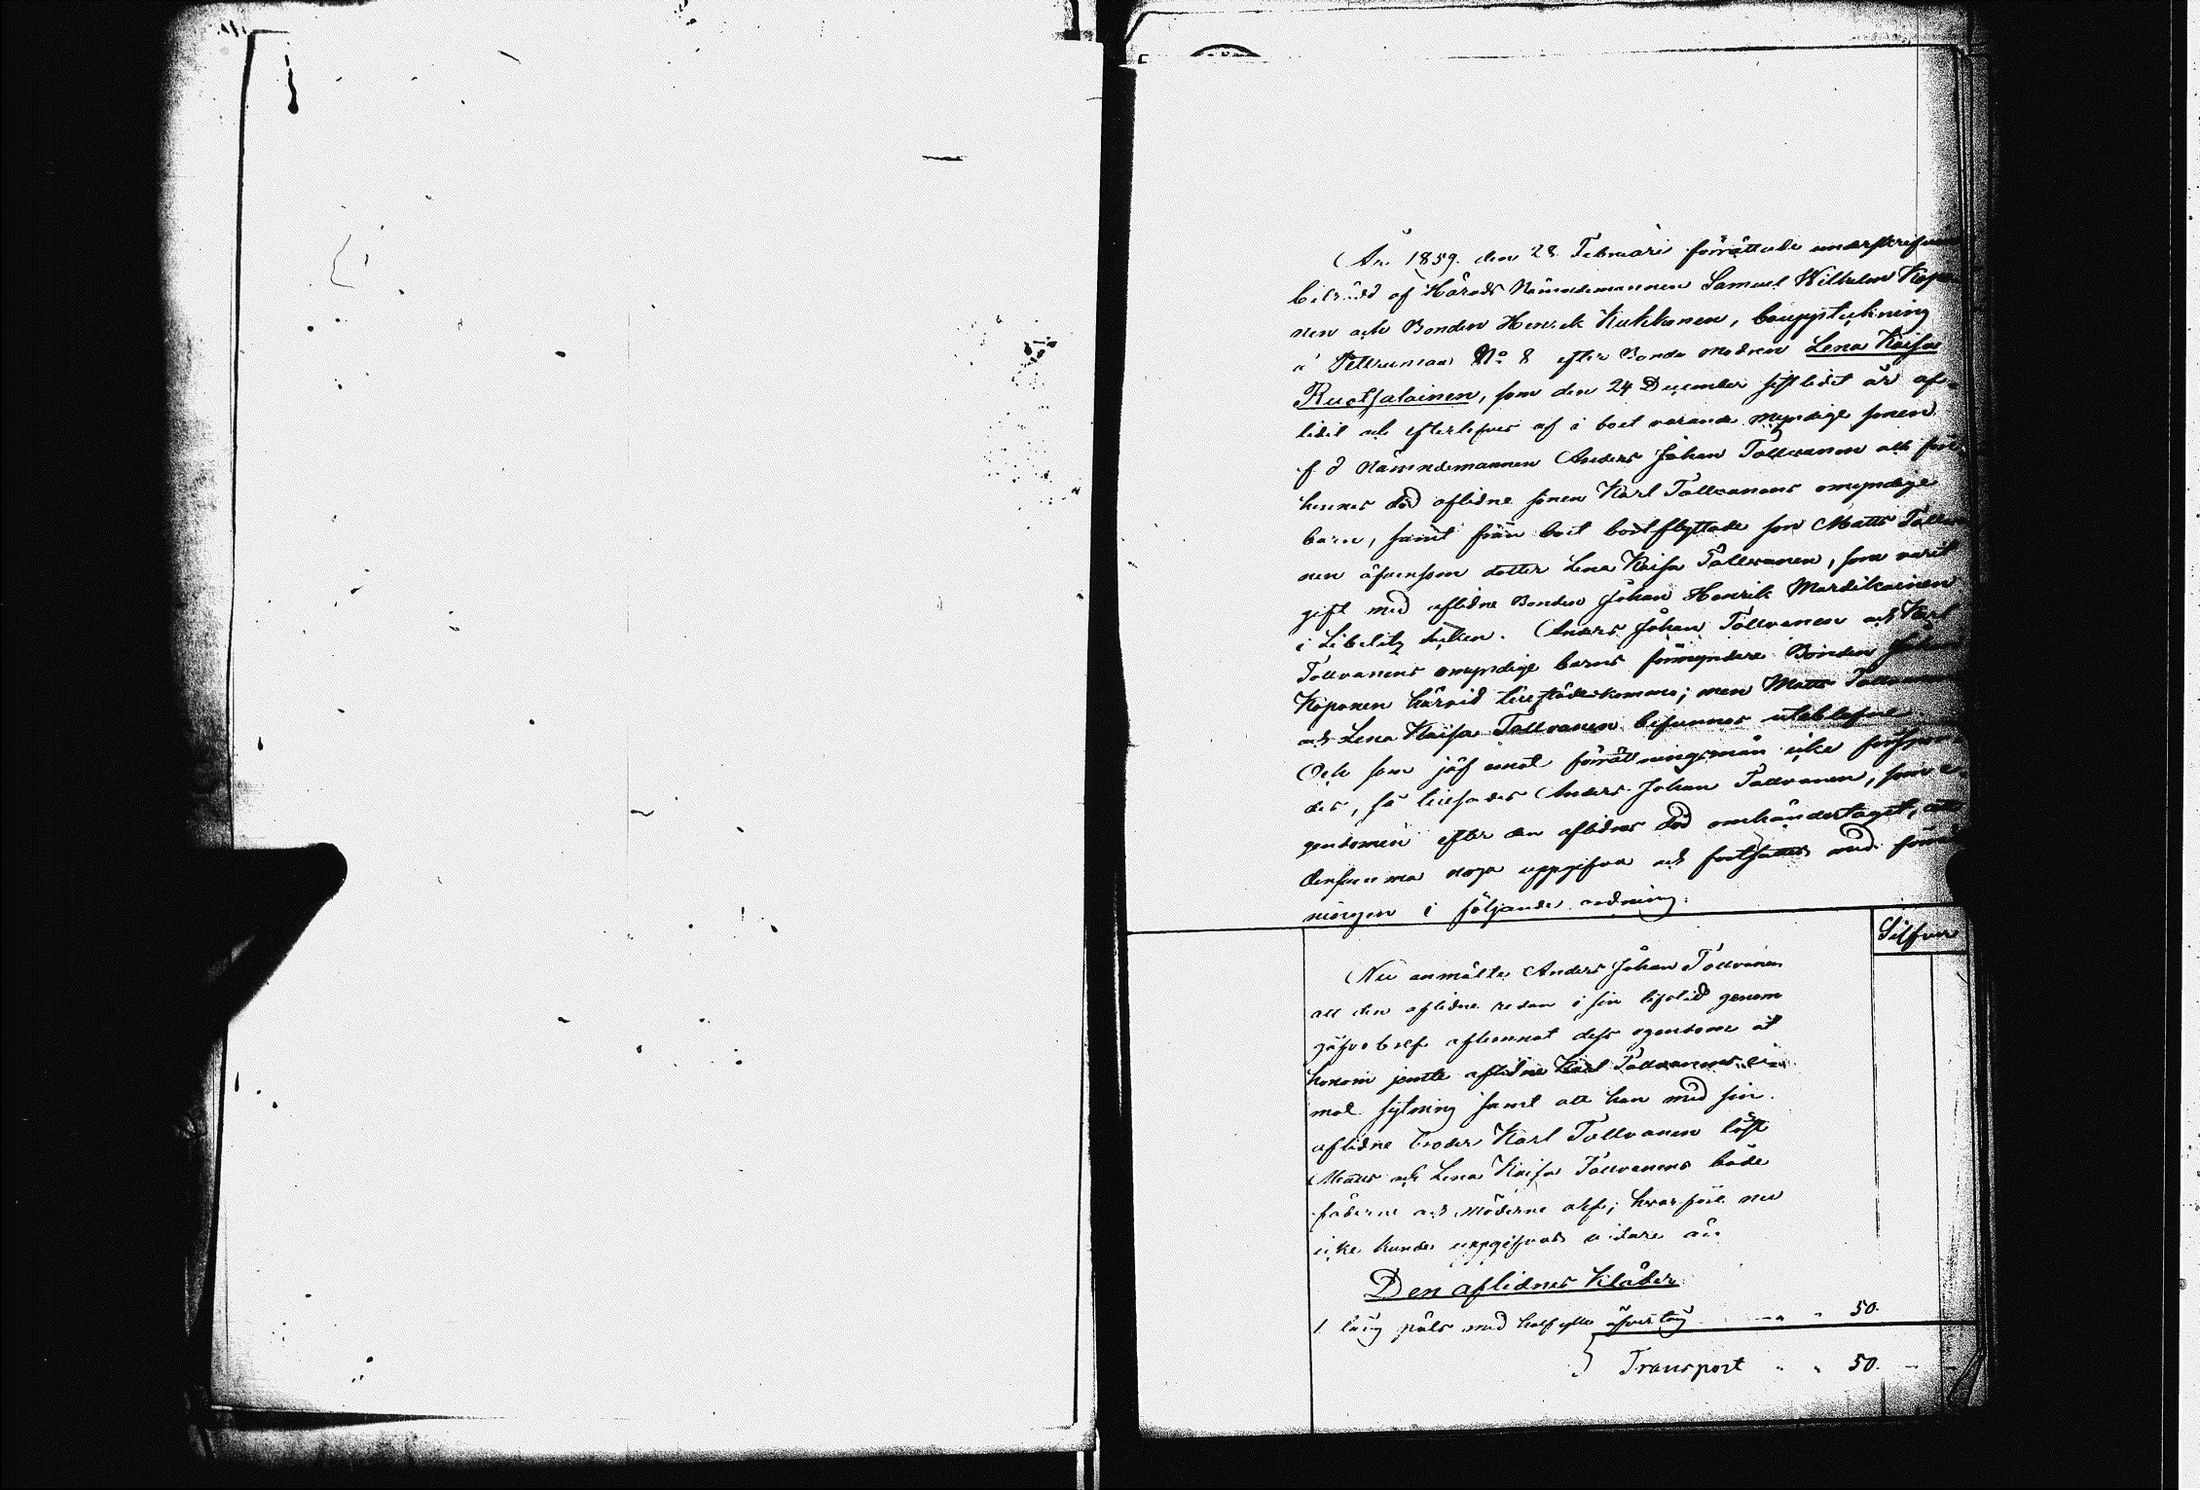 År 1859 den 28 Februari förrättade underskrifven
biträdd af Härads Nämndemannen Samuel Wilhelm Kopo-
nen och Bonden Henrik Kukkonen, bouppteckning
å N:o 8 efter Bonde Modren Lena Kaisa
Ruotsalainen, som den 24 December sistledit år af-
lidit och efterlefves af i boet varande myndige sonen
f d Nämndemannen Anders Johan Tollvanen och före
hennes död aflidne sonen Karl Tollvanens omyndige
barn, samt från boet bortflyttade son Matts Tollva-
nen äfvensom dotter Lena Kaisa Tollvanen, som varit
gift med aflidne Bonden Johan Henrik Mardikainen
i Libelitz Socken. Anders Johan Tollvanen och Karl
Tollvanens omyndige barns förmyndare Bonden Johan
Koponen härvid tillstädeskommo; men Matts Tollvanen
och Lena Kaisa Tollvanen befunnos uteblefne.
Och som jäf emot förrättningsmän icke förspor-
des, så tillsades Anders Johan Tollvanen, som e-
gendomen efter den aflidnes död omhändertagit, att
densamma noga uppgifva och fortsattes med förrätt-
ningen i följande ordning:
Silfver
Nu anmälte Anders Johan Tollvanen
att den aflidne redan i sin lifstid genom
gåfvobref aflemnat dess egendom åt
honom jemte aflidne Karl Tollvanens
mot sytning samt att han med sin
aflidne broder Karl Tollvanen löst
Matts och Lena Kaisa Tollvanens både
fäderne och Möderne arf; hvarföre nu
icke kunde uppgifvas vidare än
Den aflidnes Kläder
1 lång päls med halfylle öfvertyg " " 50.
Transport " " 50. —